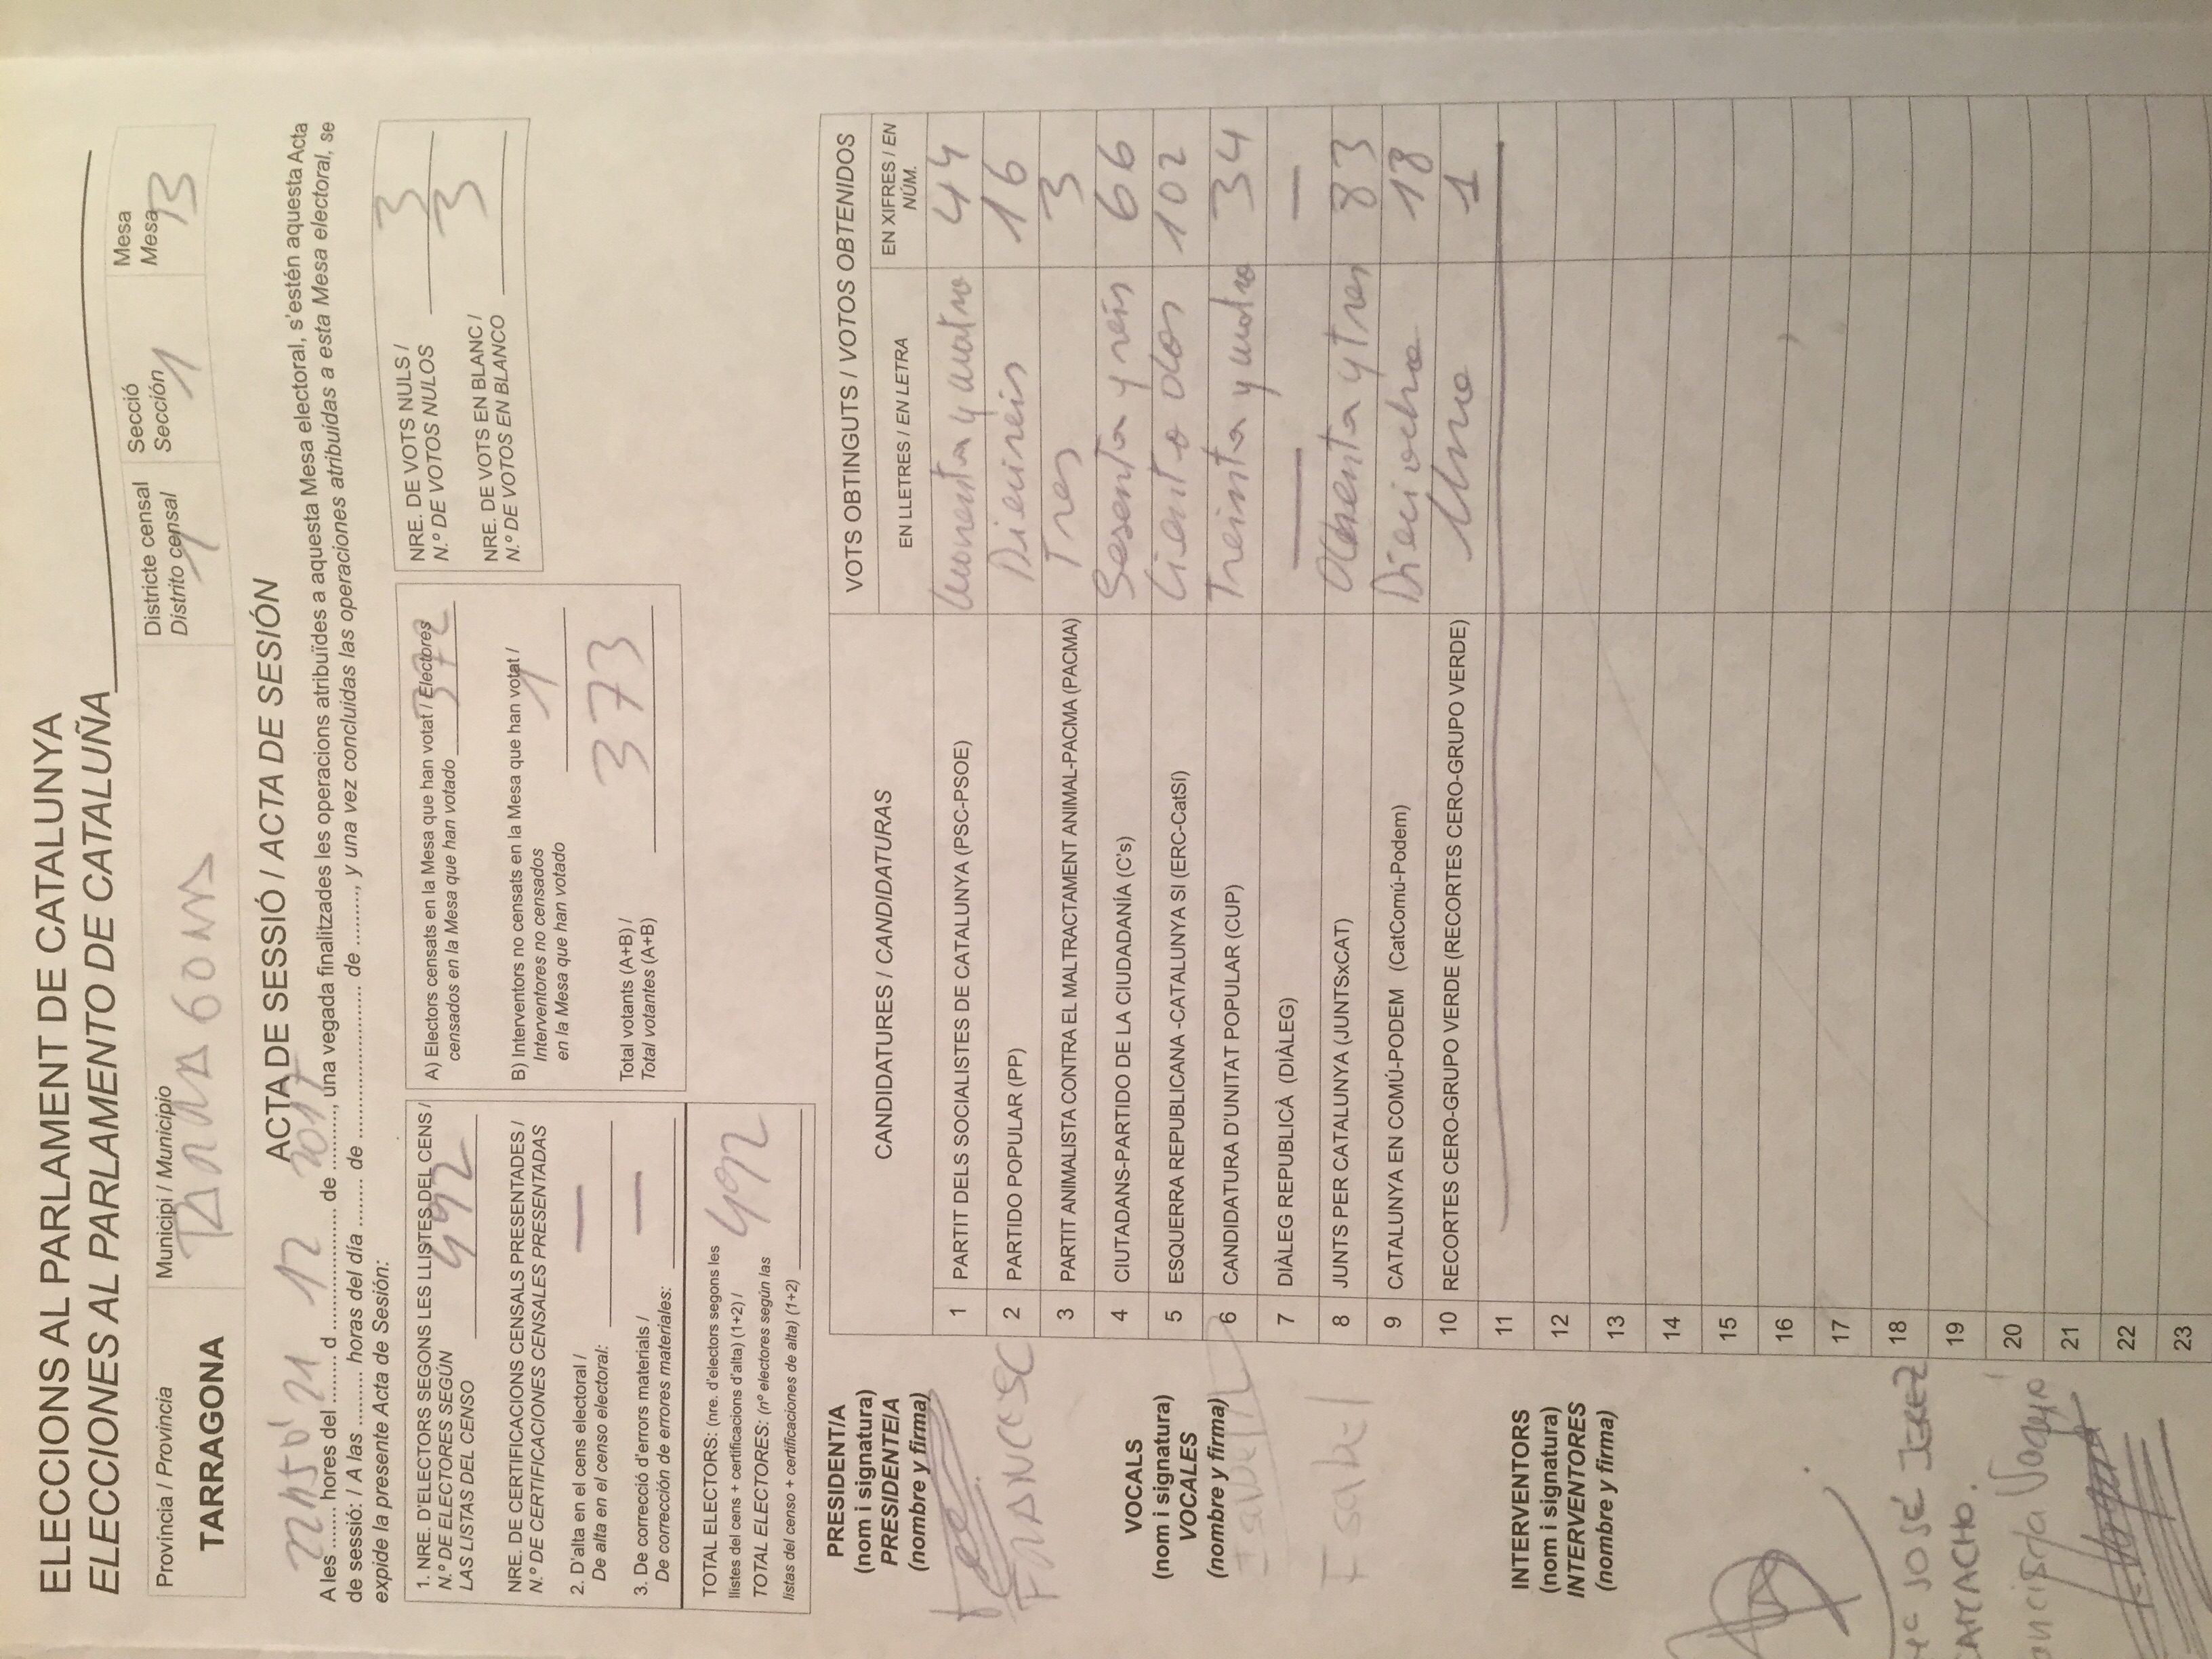 ELECCIONS AL PARLAMENT DE CATALUNYA
ELECCIONES AL PARLAMENTO DE CATALUÑA
Província / Provincia
TARRAGONA
Municipi / Municipio
TARRAGONA
Districte censal
Distrito censal
1
Secció
Sección
1
Mesa
Mesa
B
ACTA DE SESSIÓ / ACTA DE SESIÓN
22h50' 21 12 2017
A les ....... hores del ........ d .................... de .........., una vegada finalitzades les operacions atribuïdes a aquesta Mesa electoral, s'estén aquesta Acta
de sessió: / A las ......... horas del día ........ de ......................... de ........., y una vez concluidas las operaciones atribuidas a esta Mesa electoral, se
expide la presente Acta de Sesión:
1. NRE. D'ELECTORS SEGONS LES LLISTES DEL CENS /
N.º DE ELECTORES SEGÚN
LAS LISTAS DEL CENSO 492
NRE. DE CERTIFICACIONS CENSALS PRESENTADES /
N.º DE CERTIFICACIONES CENSALES PRESENTADAS
2. D'alta en el cens electoral / —
De alta en el censo electoral:
3. De correcció d'errors materials / —
De corrección de errores materiales:
TOTAL ELECTORS: (nre. d'electors segons les
llistes del cens + certificacions d'alta) (1+2) / 492
TOTAL ELECTORES: (nº electores según las
listas del censo + certificaciones de alta) (1+2)
A) Electors censats en la Mesa que han votat / Electores
censados en la Mesa que han votado 372
B) Interventors no censats en la Mesa que han votat /
Interventores no censados
en la Mesa que han votado 1
Total votants (A+B) / 373
Total votantes (A+B)
NRE. DE VOTS NULS / 3
N.º DE VOTOS NULOS
NRE. DE VOTS EN BLANC / 3
N.º DE VOTOS EN BLANCO
PRESIDENT/A
(nom i signatura)
PRESIDENTE/A
(nombre y firma)
FRANCESC
VOCALS
(nom i signatura)
VOCALES
(nombre y firma)
Isabel
Isabel
INTERVENTORS
(nom i signatura)
INTERVENTORES
(nombre y firma)
Mª JOSÉ JEREZ
CAMACHO.
CANDIDATURES / CANDIDATURAS
VOTS OBTINGUTS / VOTOS OBTENIDOS
EN LLETRES / EN LETRA
EN XIFRES / EN
NÚM.
1 PARTIT DELS SOCIALISTES DE CATALUNYA (PSC-PSOE) Cuarenta y cuatro 44
2 PARTIDO POPULAR (PP) Dieciseis 16
3 PARTIT ANIMALISTA CONTRA EL MALTRACTAMENT ANIMAL-PACMA (PACMA) Tres 3
4 CIUTADANS-PARTIDO DE LA CIUDADANÍA (C's) Sesenta y seis 66
5 ESQUERRA REPUBLICANA -CATALUNYA SI (ERC-CatSí) Ciento dos 102
6 CANDIDATURA D'UNITAT POPULAR (CUP) Treinta y cuatro 34
7 DIÀLEG REPUBLICÀ (DIÀLEG) — —
8 JUNTS PER CATALUNYA (JUNTSxCAT) Ochenta y tres 83
9 CATALUNYA EN COMÚ-PODEM (CatComú-Podem) Dieciocho 18
10 RECORTES CERO-GRUPO VERDE (RECORTES CERO-GRUPO VERDE) Uno 1
11
12
13
14
15
16
17
18
19
20
21
22
23